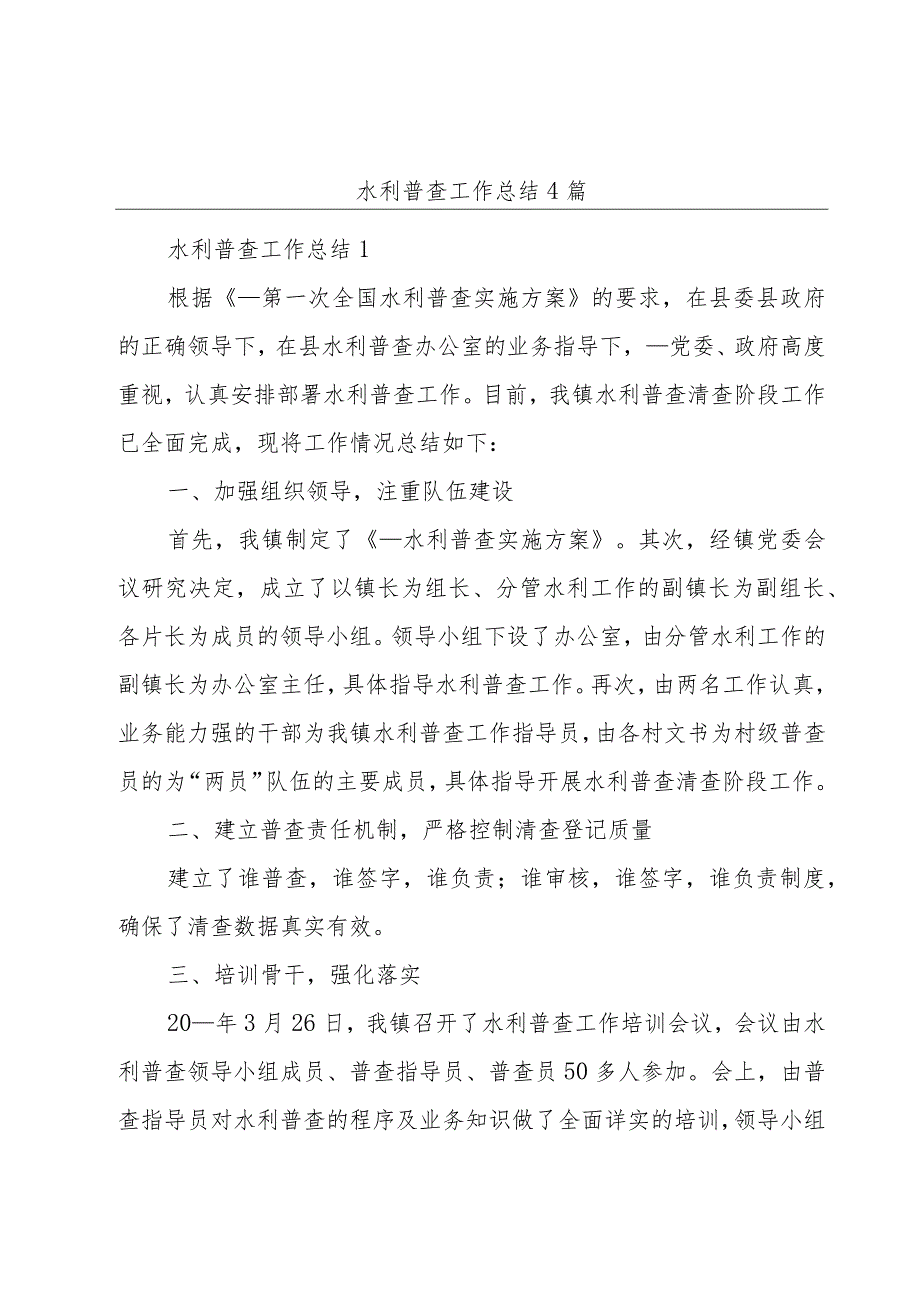 水利普查工作总结 4 篇
水利普查工作总结 1
根据《—第一次全国水利普查实施方案》的要求，在县委县政府
的正确领导下，在县水利普查办公室的业务指导下，—党委、政府高度
重视，认真安排部署水利普查工作。目前，我镇水利普查清查阶段工作
已全面完成，现将工作情况总结如下：
一、加强组织领导，注重队伍建设
首先，我镇制定了《—水利普查实施方案》。其次，经镇党委会
议研究决定，成立了以镇长为组长、分管水利工作的副镇长为副组长、
各片长为成员的领导小组。领导小组下设了办公室，由分管水利工作的
副镇长为办公室主任，具体指导水利普查工作。再次，由两名工作认真，
业务能力强的干部为我镇水利普查工作指导员，由各村文书为村级普查
员的为“两员”队伍的主要成员，具体指导开展水利普查清查阶段工作。
二、建立普查责任机制，严格控制清查登记质量
建立了谁普查，谁签字，谁负责；谁审核，谁签字，谁负责制度，
确保了清查数据真实有效。
三、培训骨干，强化落实
20—年 3 月 26 日，我镇召开了水利普查工作培训会议，会议由水
利普查领导小组成员、普查指导员、普查员 50 多人参加。会上，由普
查指导员对水利普查的程序及业务知识做了全面详实的培训，领导小组